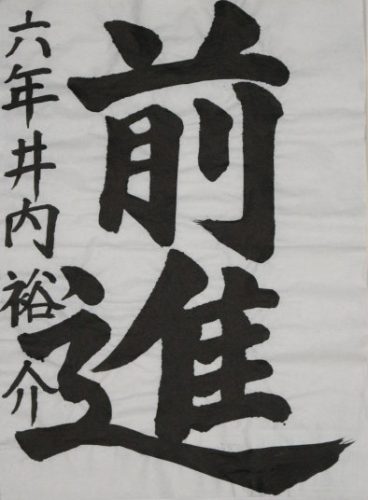 前進
六年井内裕介